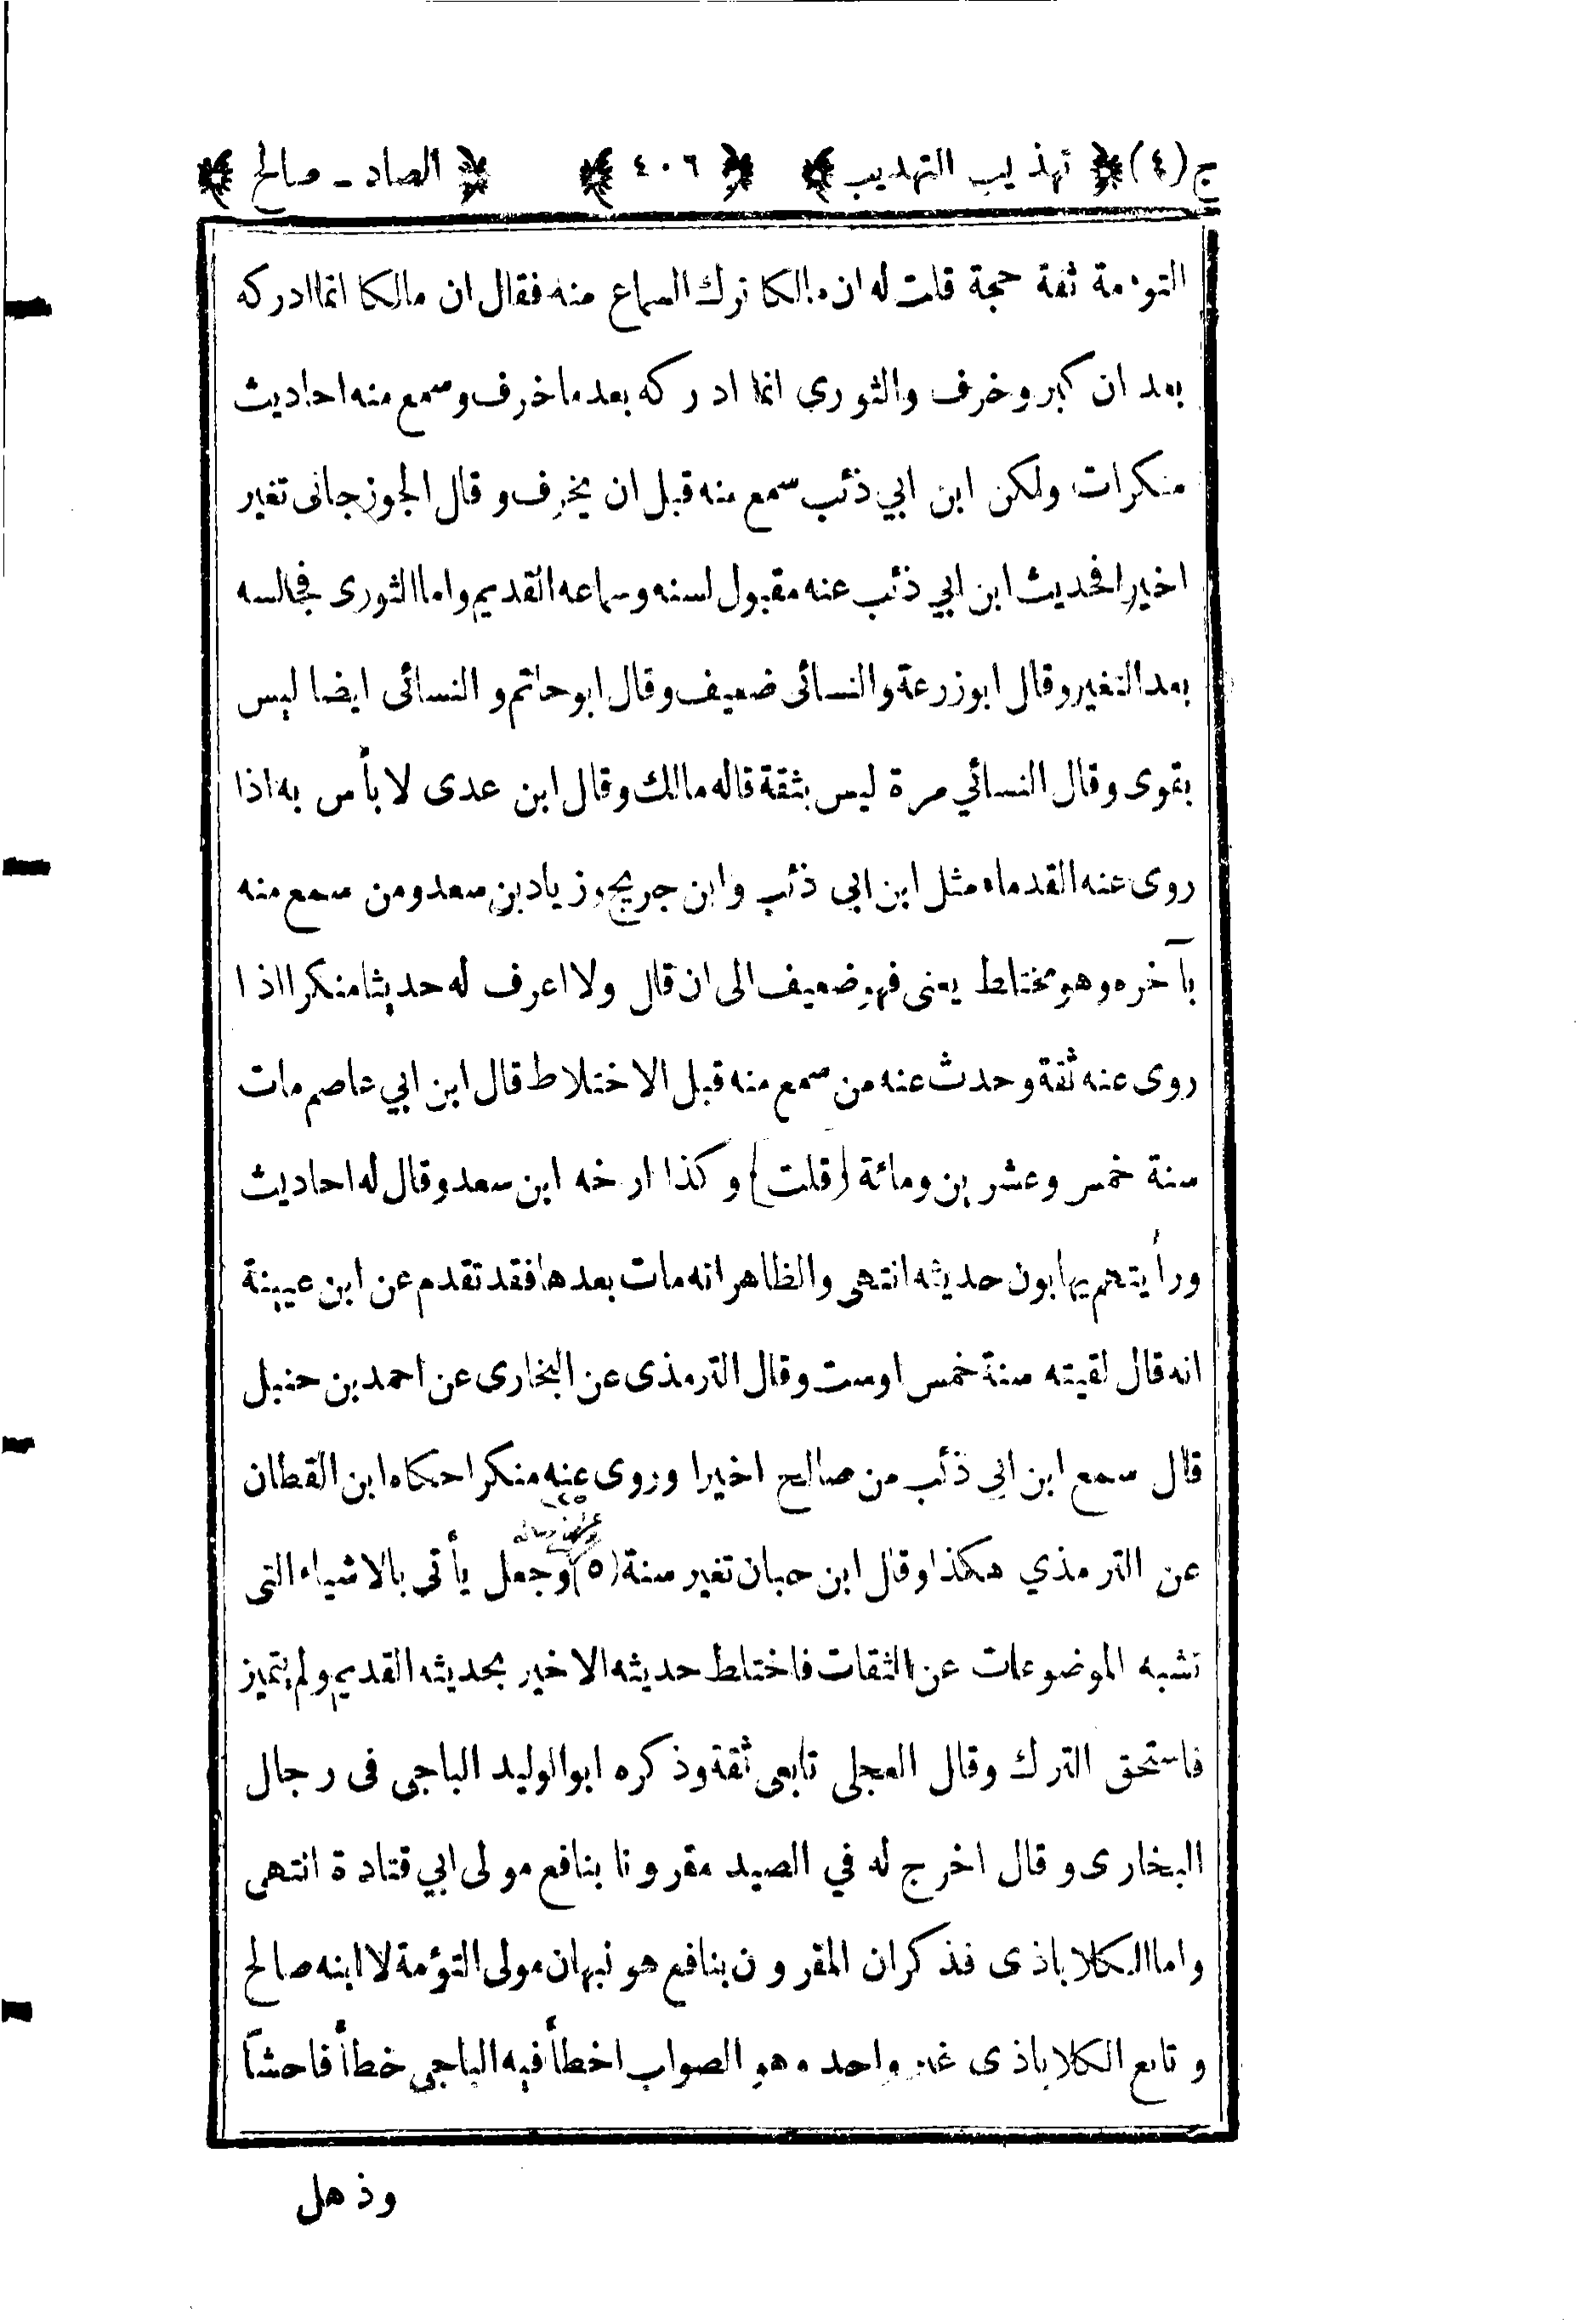 ج (٤) تهذيب التهذيب ٤٠٦ الصاد - صالح
التوءمة ثقة حجة قلت له ان مالكا ترك السماع منه فقال ان مالكا انما ادركه
بعد ان كبر وخرف والثورى انما ادركه بعد ما خرف وسمع منه احاديث
منكرات ولكن ابن ابي ذئب سمع منه قبل ان يخرف وقال الجوزجانى تغير
اخيرا فحديث ابن ابي ذئب عنه مقبول لسنه وسماعه القديم واما الثورى فجالسه
بعد التغير وقال ابو زرعة والنسائى ضعيف وقال ابو حاتم والنسائى ايضا ليس
بقوى وقال النسائي مرة ليس بثقة قاله مالك وقال ابن عدى لا بأس به اذا
روى عنه القدماء مثل ابن ابى ذئب وابن جريج وزياد بن سعد ومن سمع منه
بآخره وهو مختلط يعنى فهو ضعيف الى ان قال ولا اعرف له حديثا منكرا اذا
روى عنه ثقة وحدث عنه من سمع منه قبل الاختلاط قال ابن ابي عاصم مات
سنة خمس وعشرين ومائة (قلت) وكذا ارخه ابن سعد وقال له احاديث
ورأيتهم يهابون حديثه انتهى والظاهر انه مات بعدها فقد تقدم عن ابن عيينة
انه قال لقيته سنة خمس اوست وقال الترمذى عن البخارى عن احمد بن حنبل
قال سمع ابن ابي ذئب من صالح اخيرا وروى عنه منكرا حكاه ابن القطان
عن الترمذي هكذا وقال ابن حبان تغير سنة (٥) وجعل يأتى بالاشياء التى
تشبه الموضوعات عن الثقات فاختلط حديثه الاخير بحديثه القديم ولم يتميز
فاستحق الترك وقال العجلى تابعى ثقة وذكره ابو الوليد الباجى فى رجال
البخارى وقال اخرج له في الصيد مقرونا بنافع مولى ابي قتادة انتهى
واما الكلاباذى فذكر ان المقرون بنافع هو نبهان مولى التؤمة لا ابنه صالح
وتابع الكلاباذى غير واحد وهو الصواب اخطأ فيه الباجى خطأ فاحشاً
وذهل